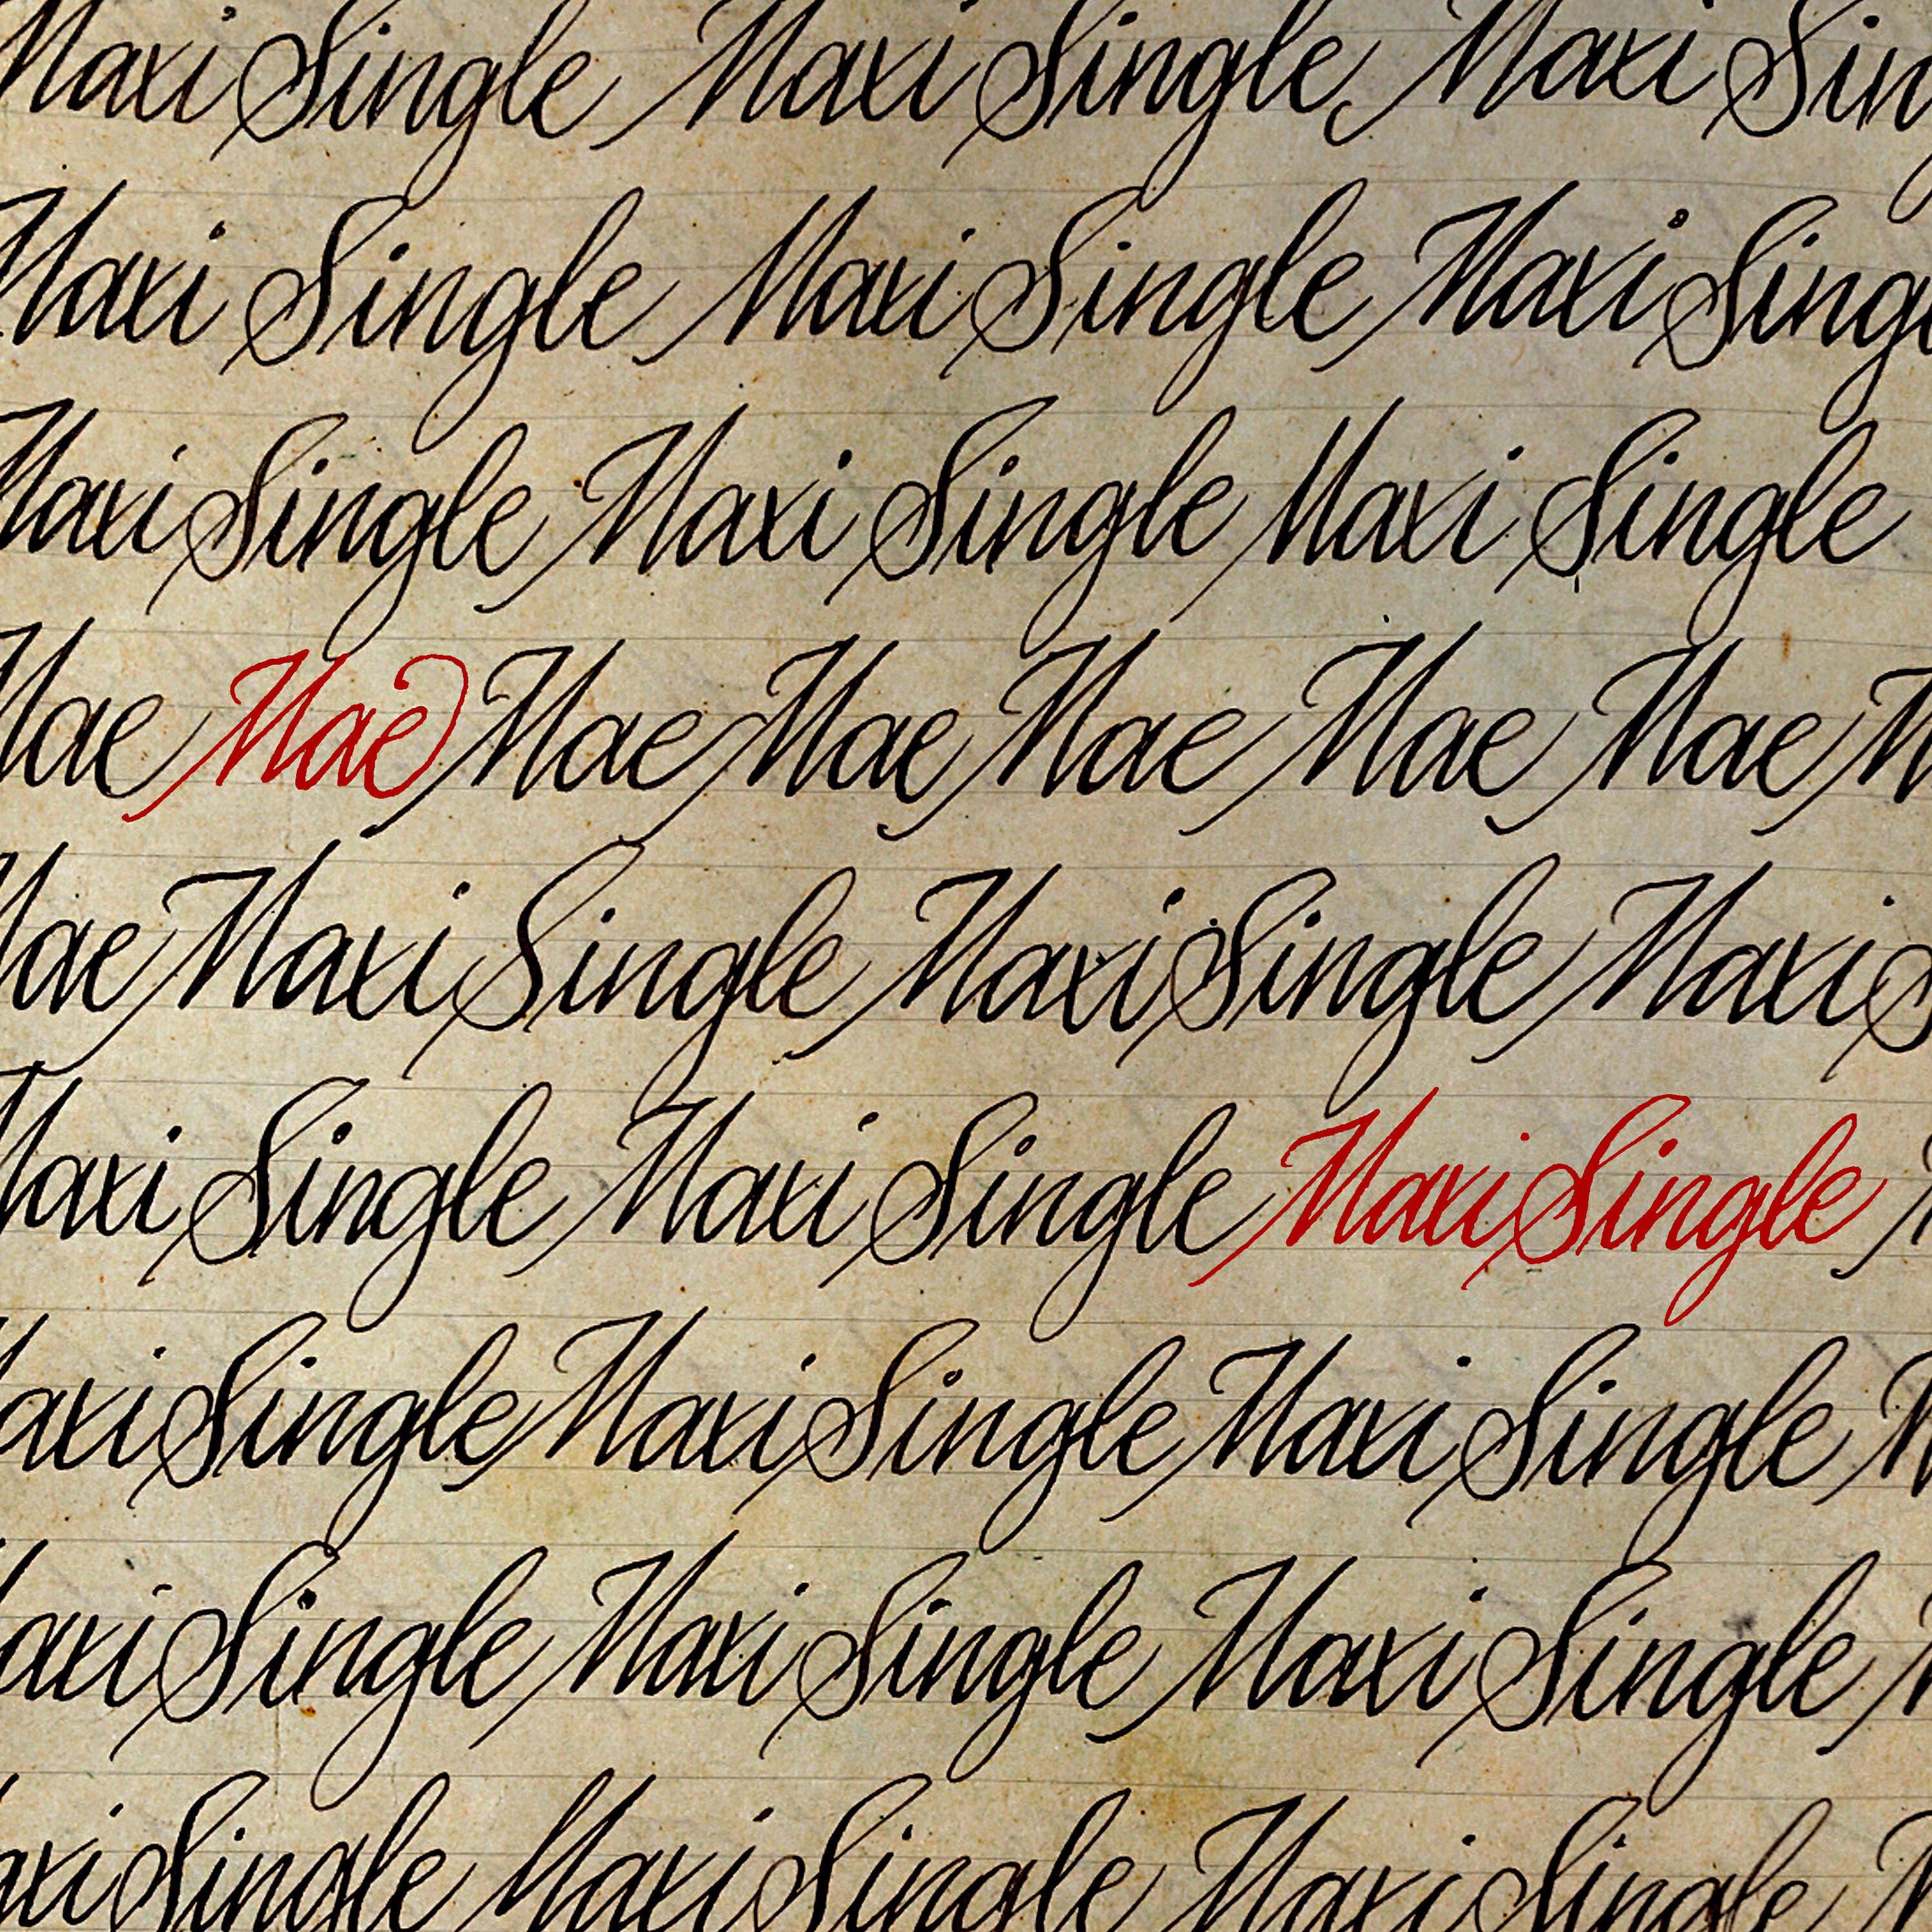 Maxi Single Maxi Single Maxi Sing
Maxi Single Maxi Single Maxi Singl
Maxi Single Maxi Single Maxi Single
Mae Mae Mae Mae Mae Mae Mae M
Mae Maxi Single Maxi Single Maxi S
Maxi Single Maxi Single Maxi Single
axi Single Maxi Single Maxi Single M
axi Single Maxi Single Maxi Single
axi Single Maxi Single Maxi Single